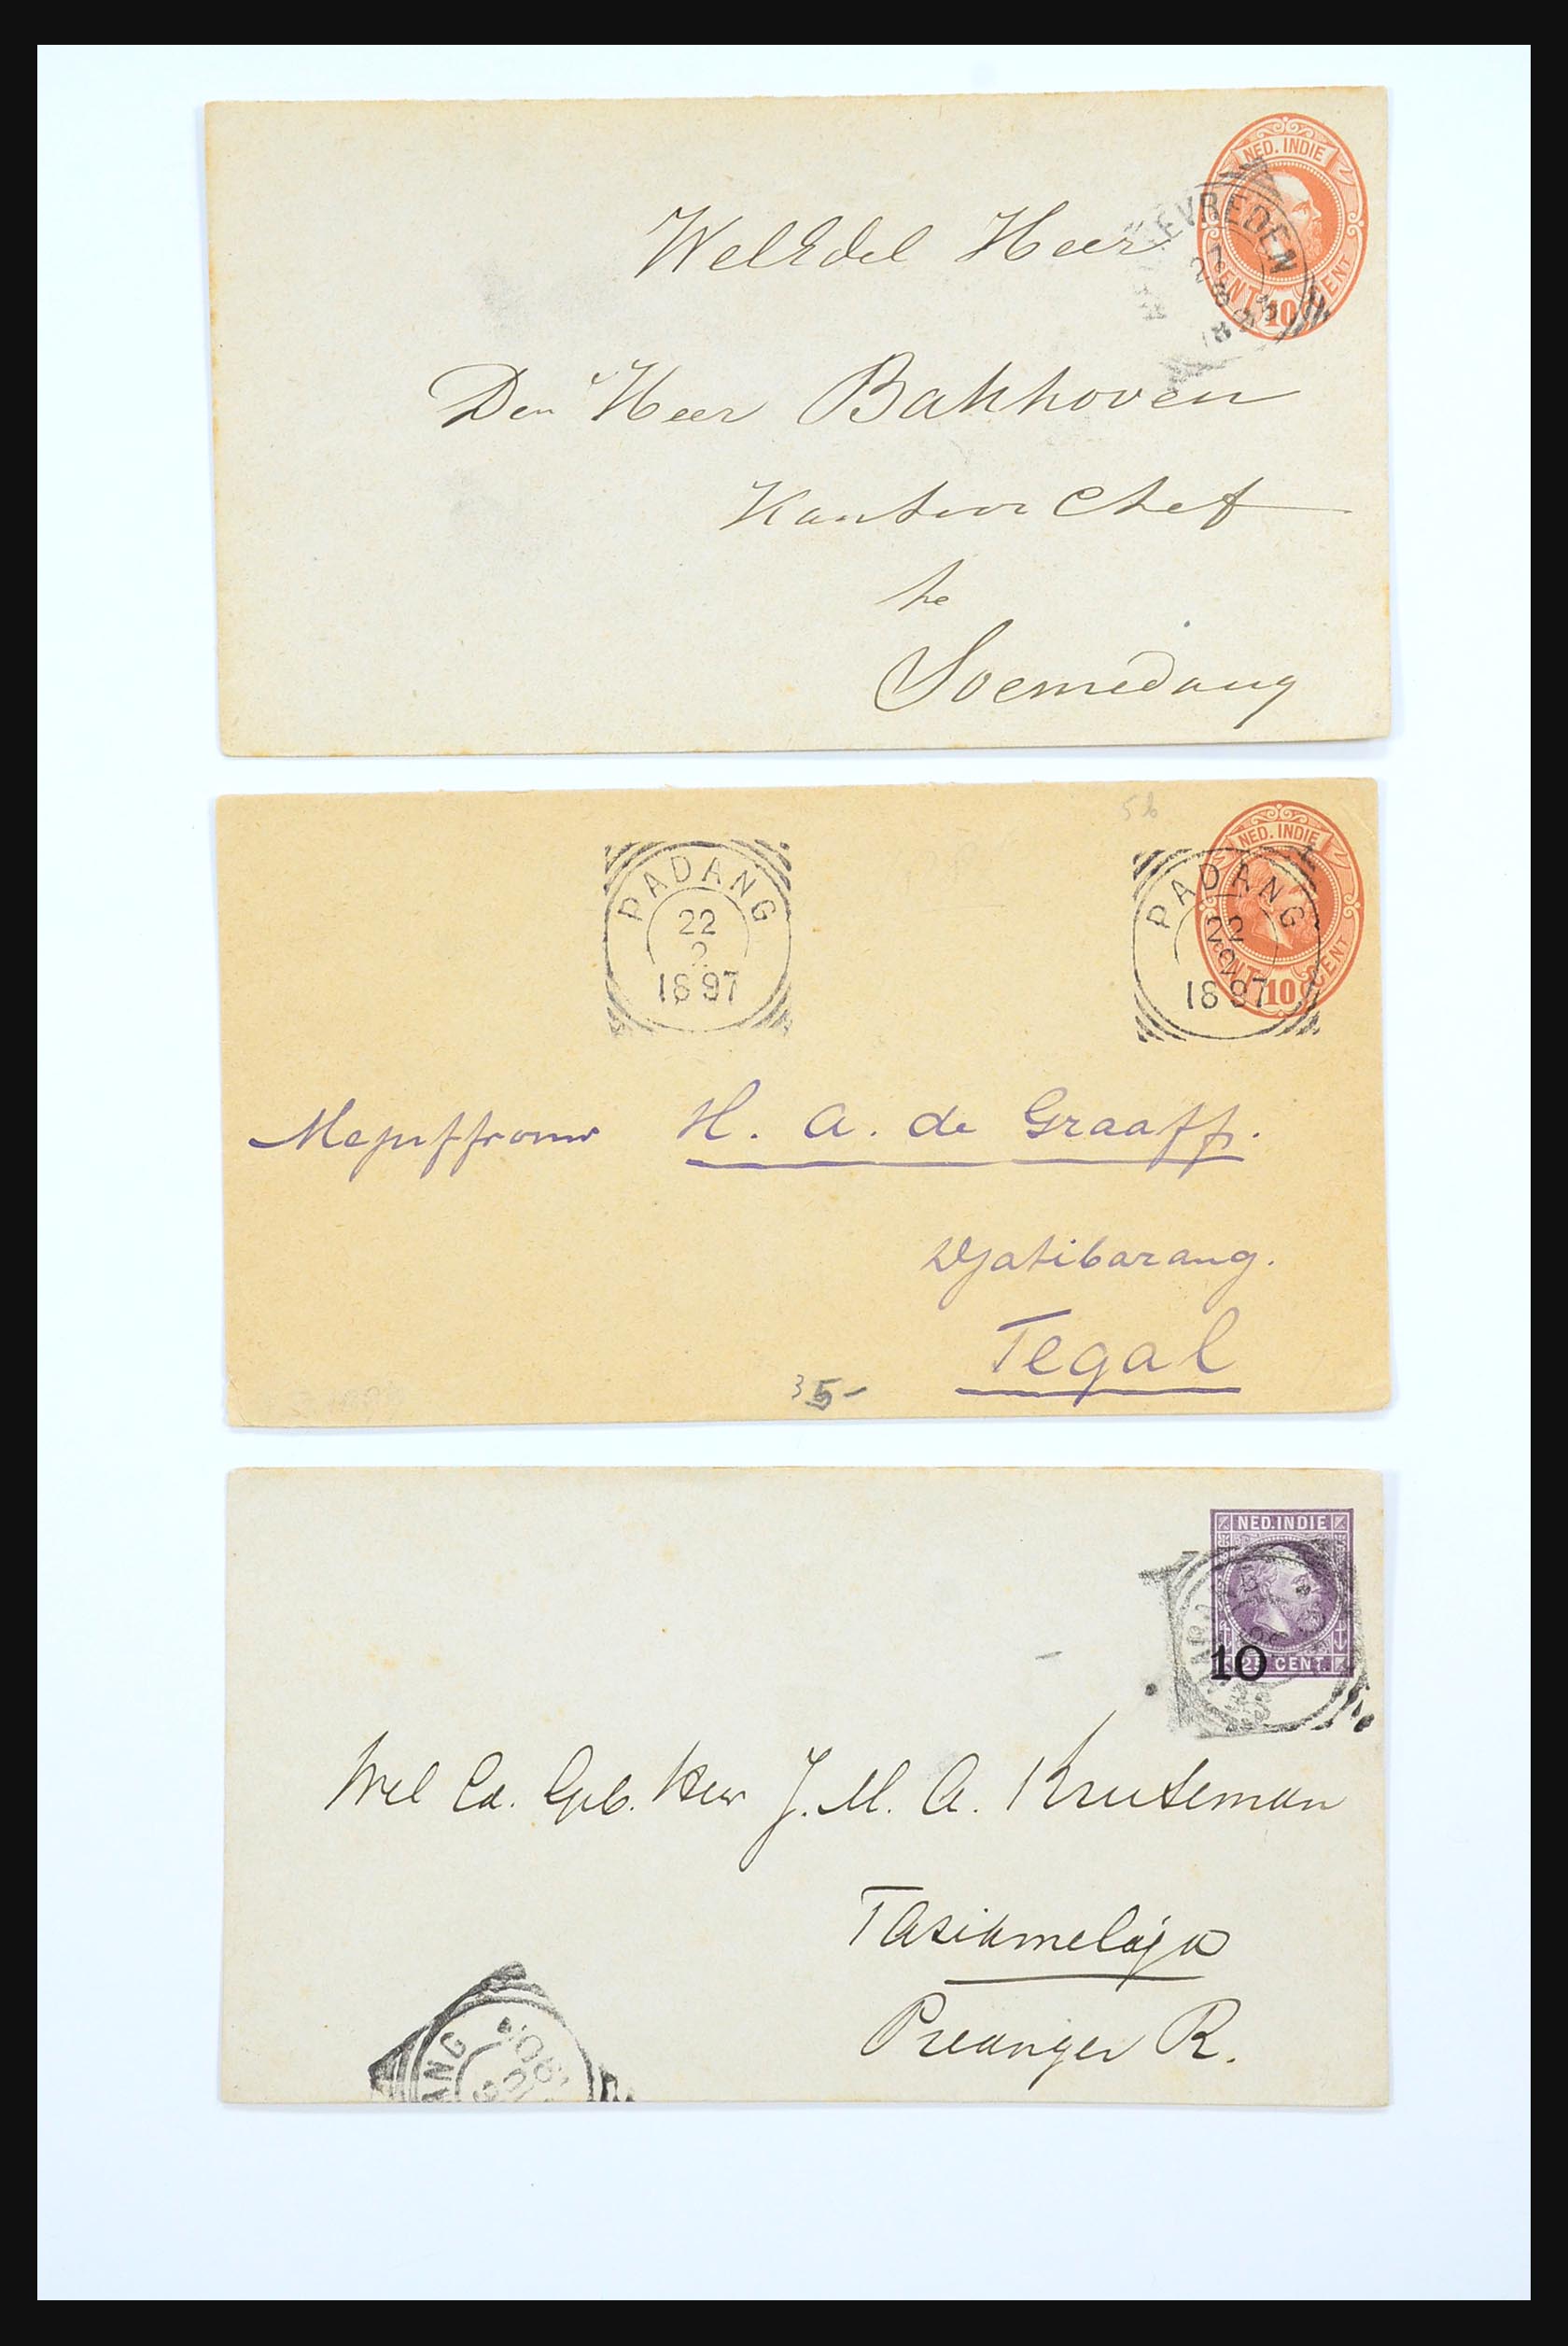 NED. INDIE
CENT 10 CENT
EVREDEN
27
8
1893
WelEdel Heer
Den Heer Bakhoven
Kantoor Chef
te
Soemedang
5b
NED. INDIE
CENT 10 CENT
PADANG
22
2
1897
PADANG
22
2
1897
Mejuffrouw H. A. de Graaff.
Djatibarang.
Tegal
35-
NED. INDIE
10
25 CENT.
Wel Ed. Geb. Heer J. M. A. Kruseman
Tasikmelaja
Preanger R.
ANG